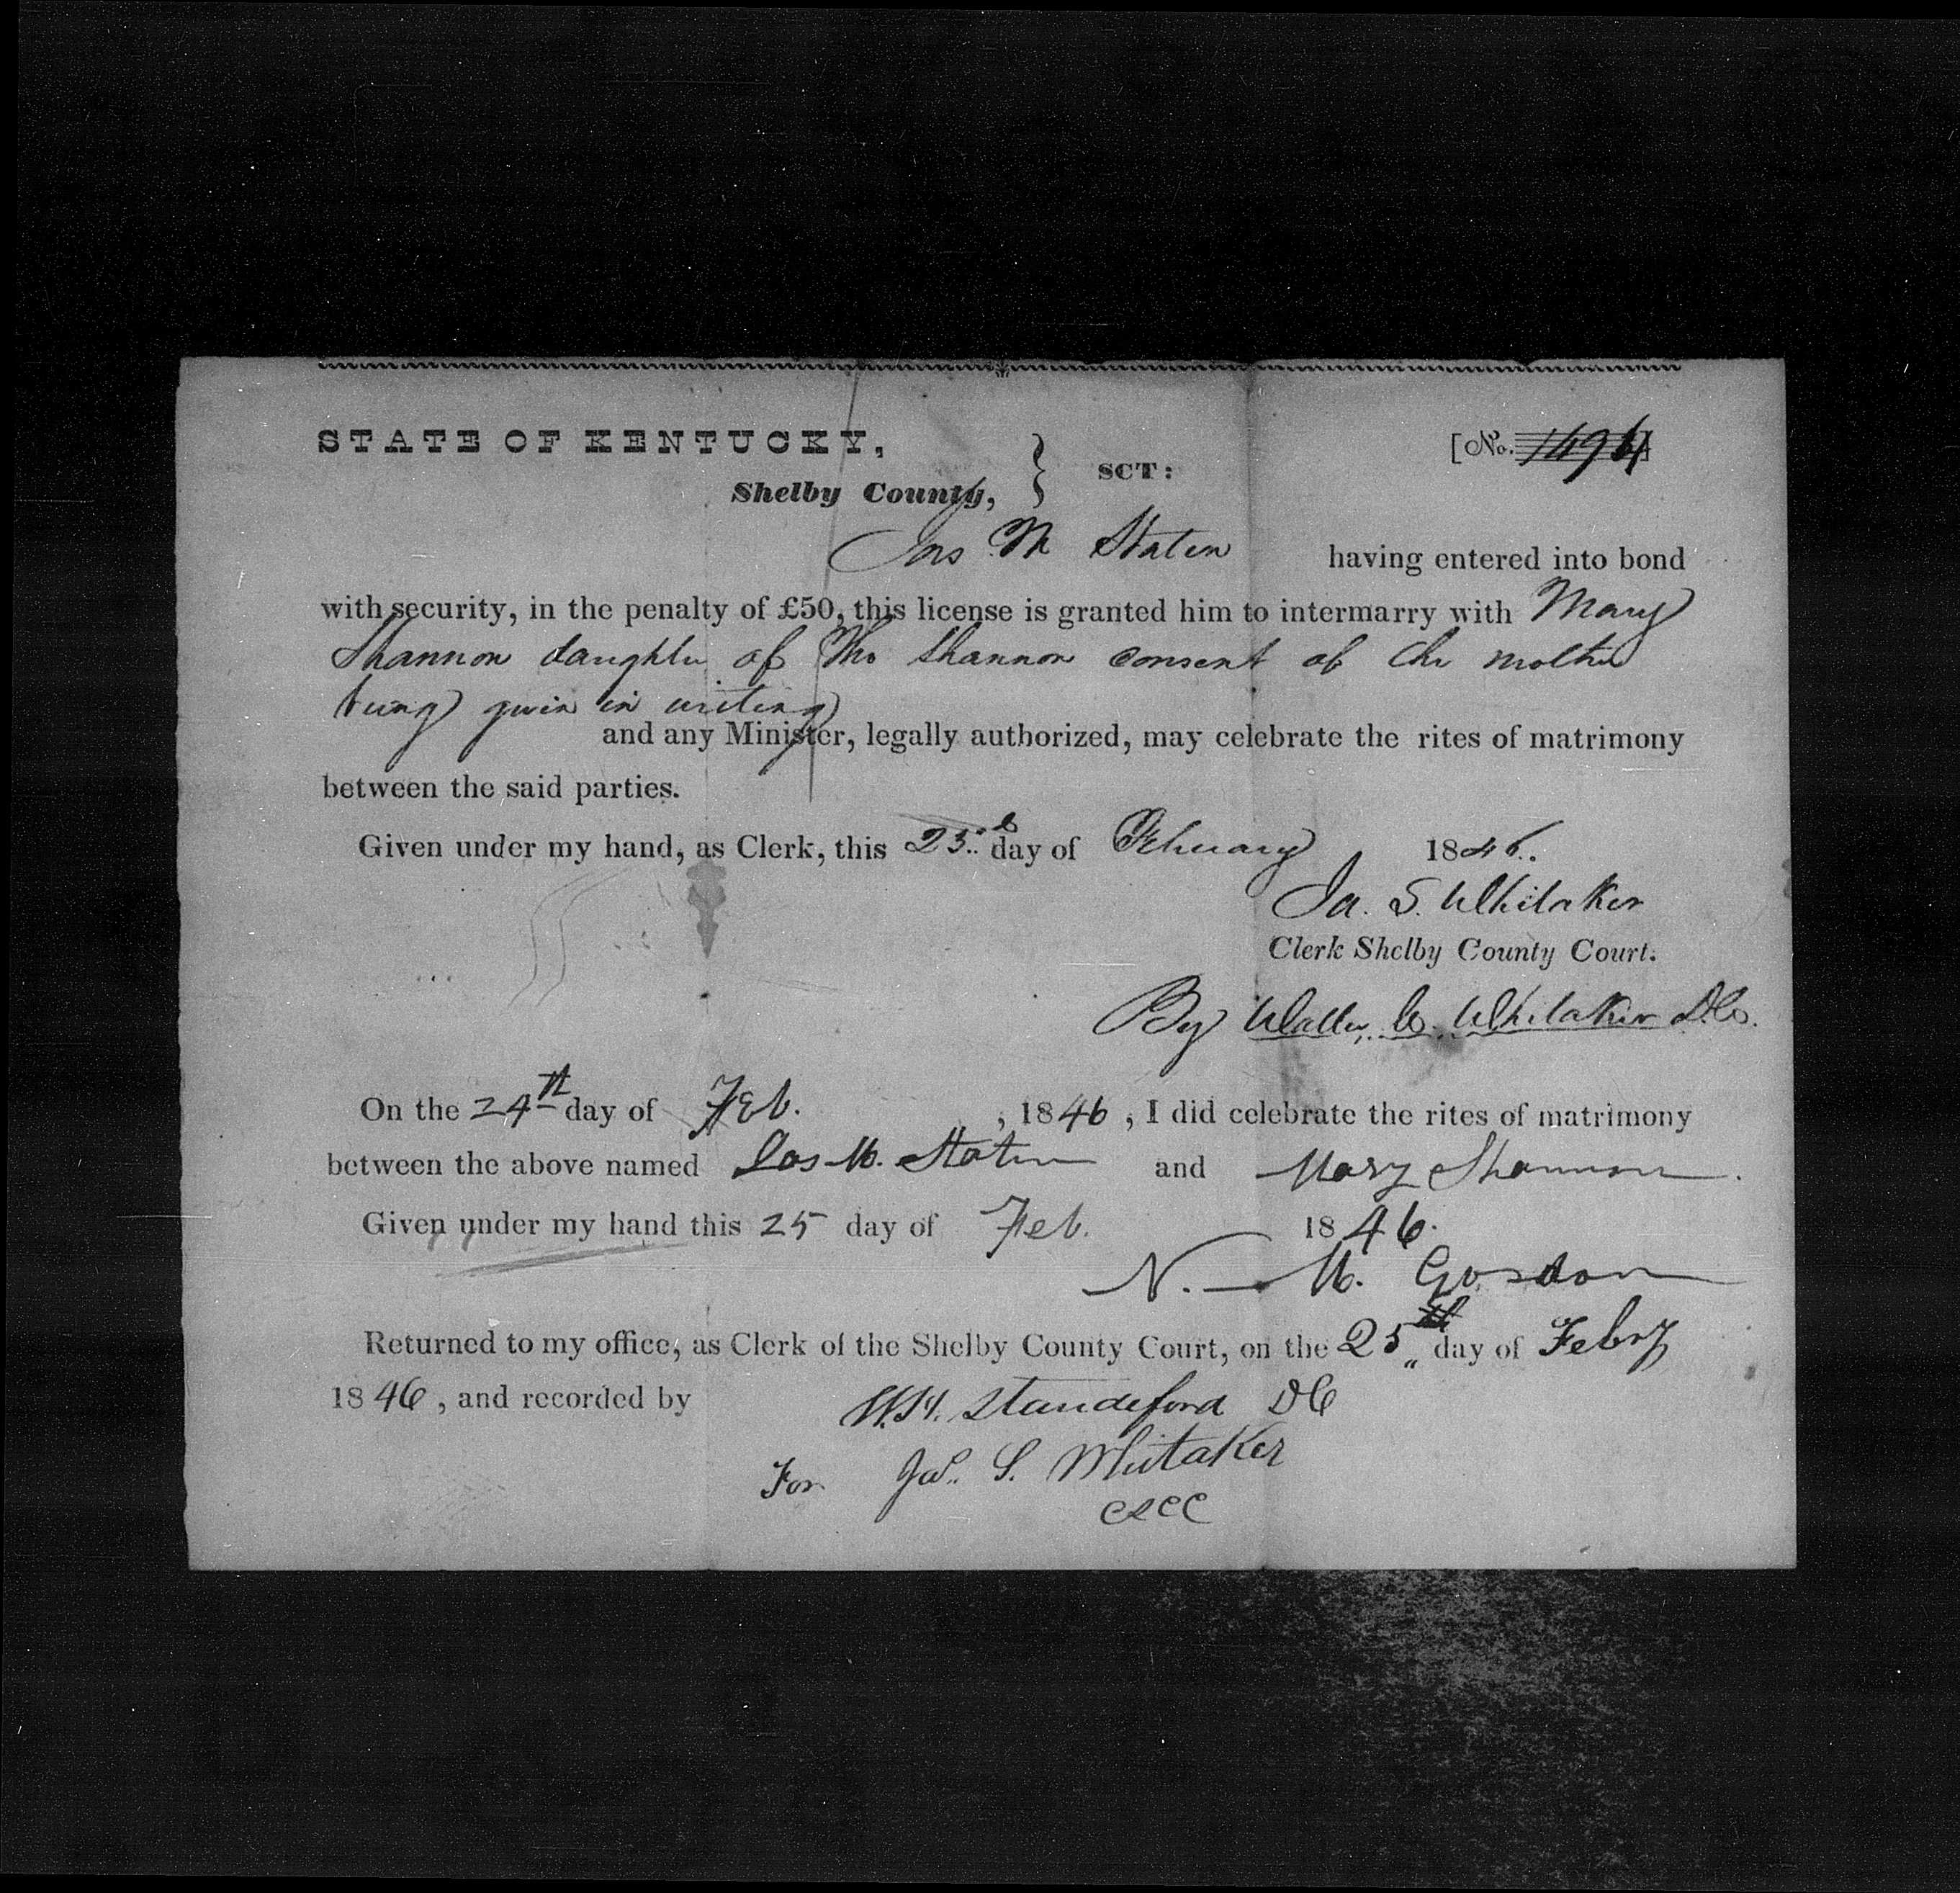 STATE OF KENTUCKY,
[No. 1496]
Shelby County, } SCT:
Jas M Staten having entered into bond
with security, in the penalty of £50, this license is granted him to intermarry with Mary
Shannon daughter of Tho Shannon consent of the mother
being given in writing
and any Minister, legally authorized, may celebrate the rites of matrimony
between the said parties.
Given under my hand, as Clerk, this 23..d day of February 1846.
Ja. S. Whitaker
Clerk Shelby County Court.
By Walter C. Whitaker D.C.
On the 24th day of Feb. , 1846 , I did celebrate the rites of matrimony
between the above named Jas M. Staten and Mary Shannon.
Given under my hand this 25 day of Feb. 1846.
N. M. Gordon
Returned to my office, as Clerk of the Shelby County Court, on the 25th day of Febry
1846 , and recorded by W.H. Standeford DC
For Jas. S. Whitaker
CSCC